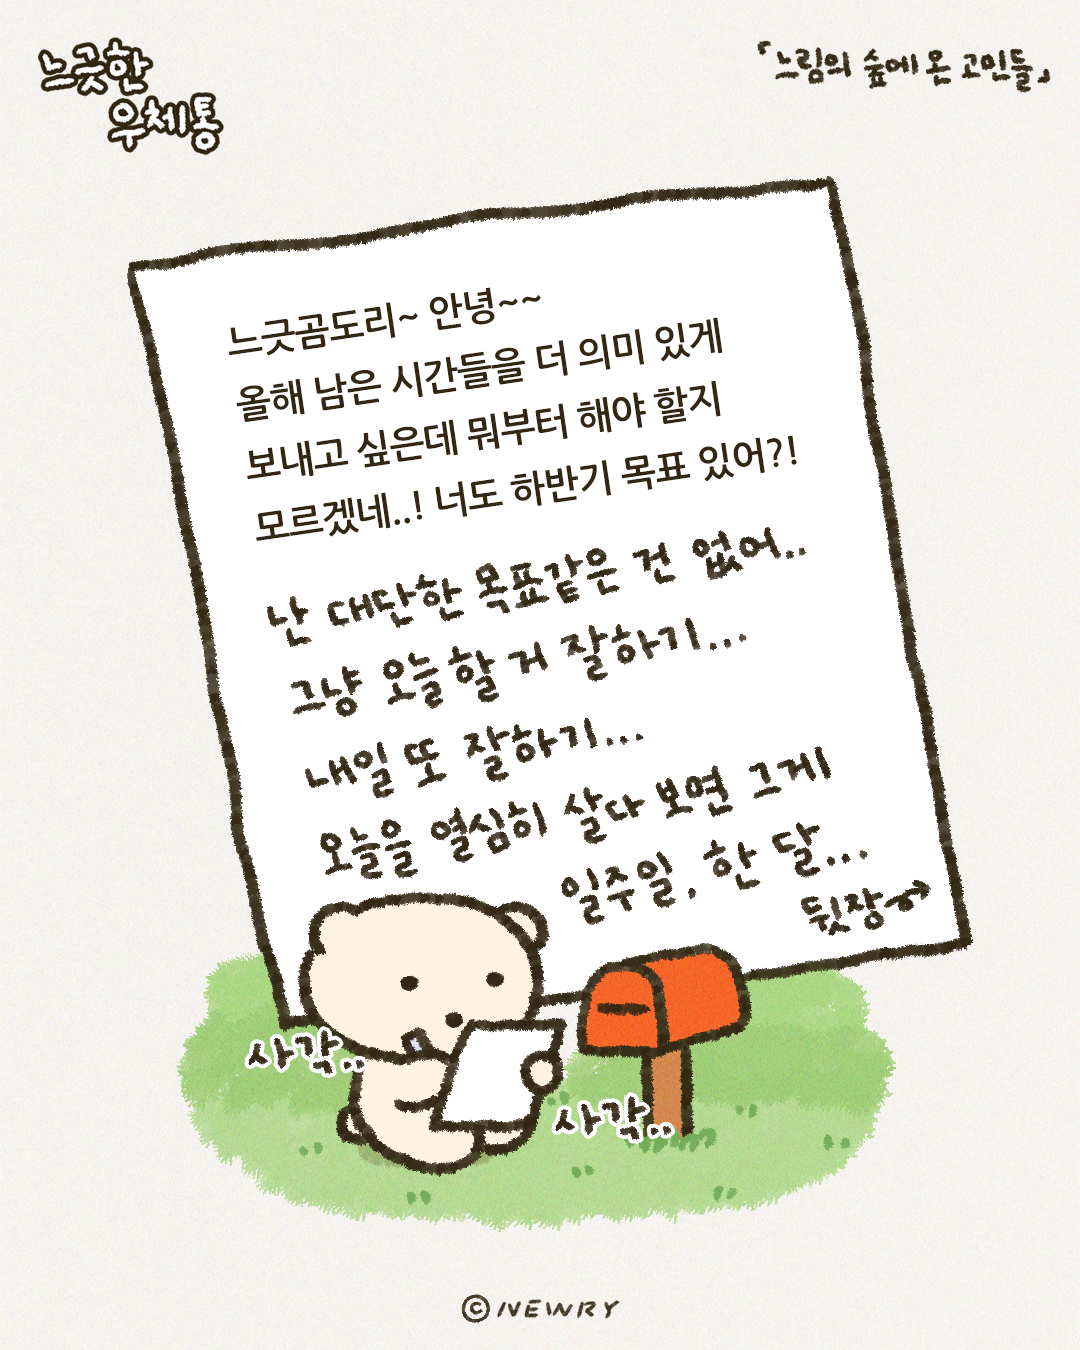 느긋한
우체통
「느림의 숲에 온 고민들」
느긋곰도리~ 안녕~~
올해 남은 시간들을 더 의미 있게
보내고 싶은데 뭐부터 해야 할지
모르겠네..! 너도 하반기 목표 있어?!
난 대단한 목표같은 건 없어..
그냥 오늘 할 거 잘하기...
내일 또 잘하기...
오늘을 열심히 살다 보면 그게
일주일, 한 달...
뒷장→
사각..
사각..
© NEWRY